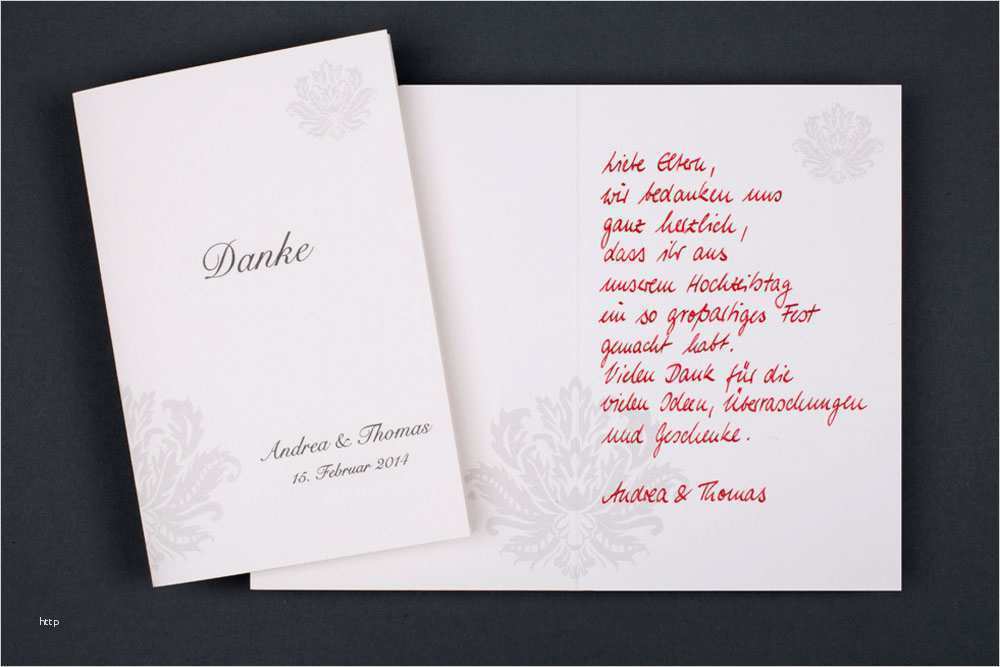 Danke
Andrea & Thomas
15. Februar 2014
Liebe Eltern,
wir bedanken uns
ganz herzlich,
dass ihr aus
unserem Hochzeitstag
ein so großartiges Fest
gemacht habt.
Vielen Dank für die
vielen Ideen, Überraschungen
und Geschenke.
Andrea & Thomas
http